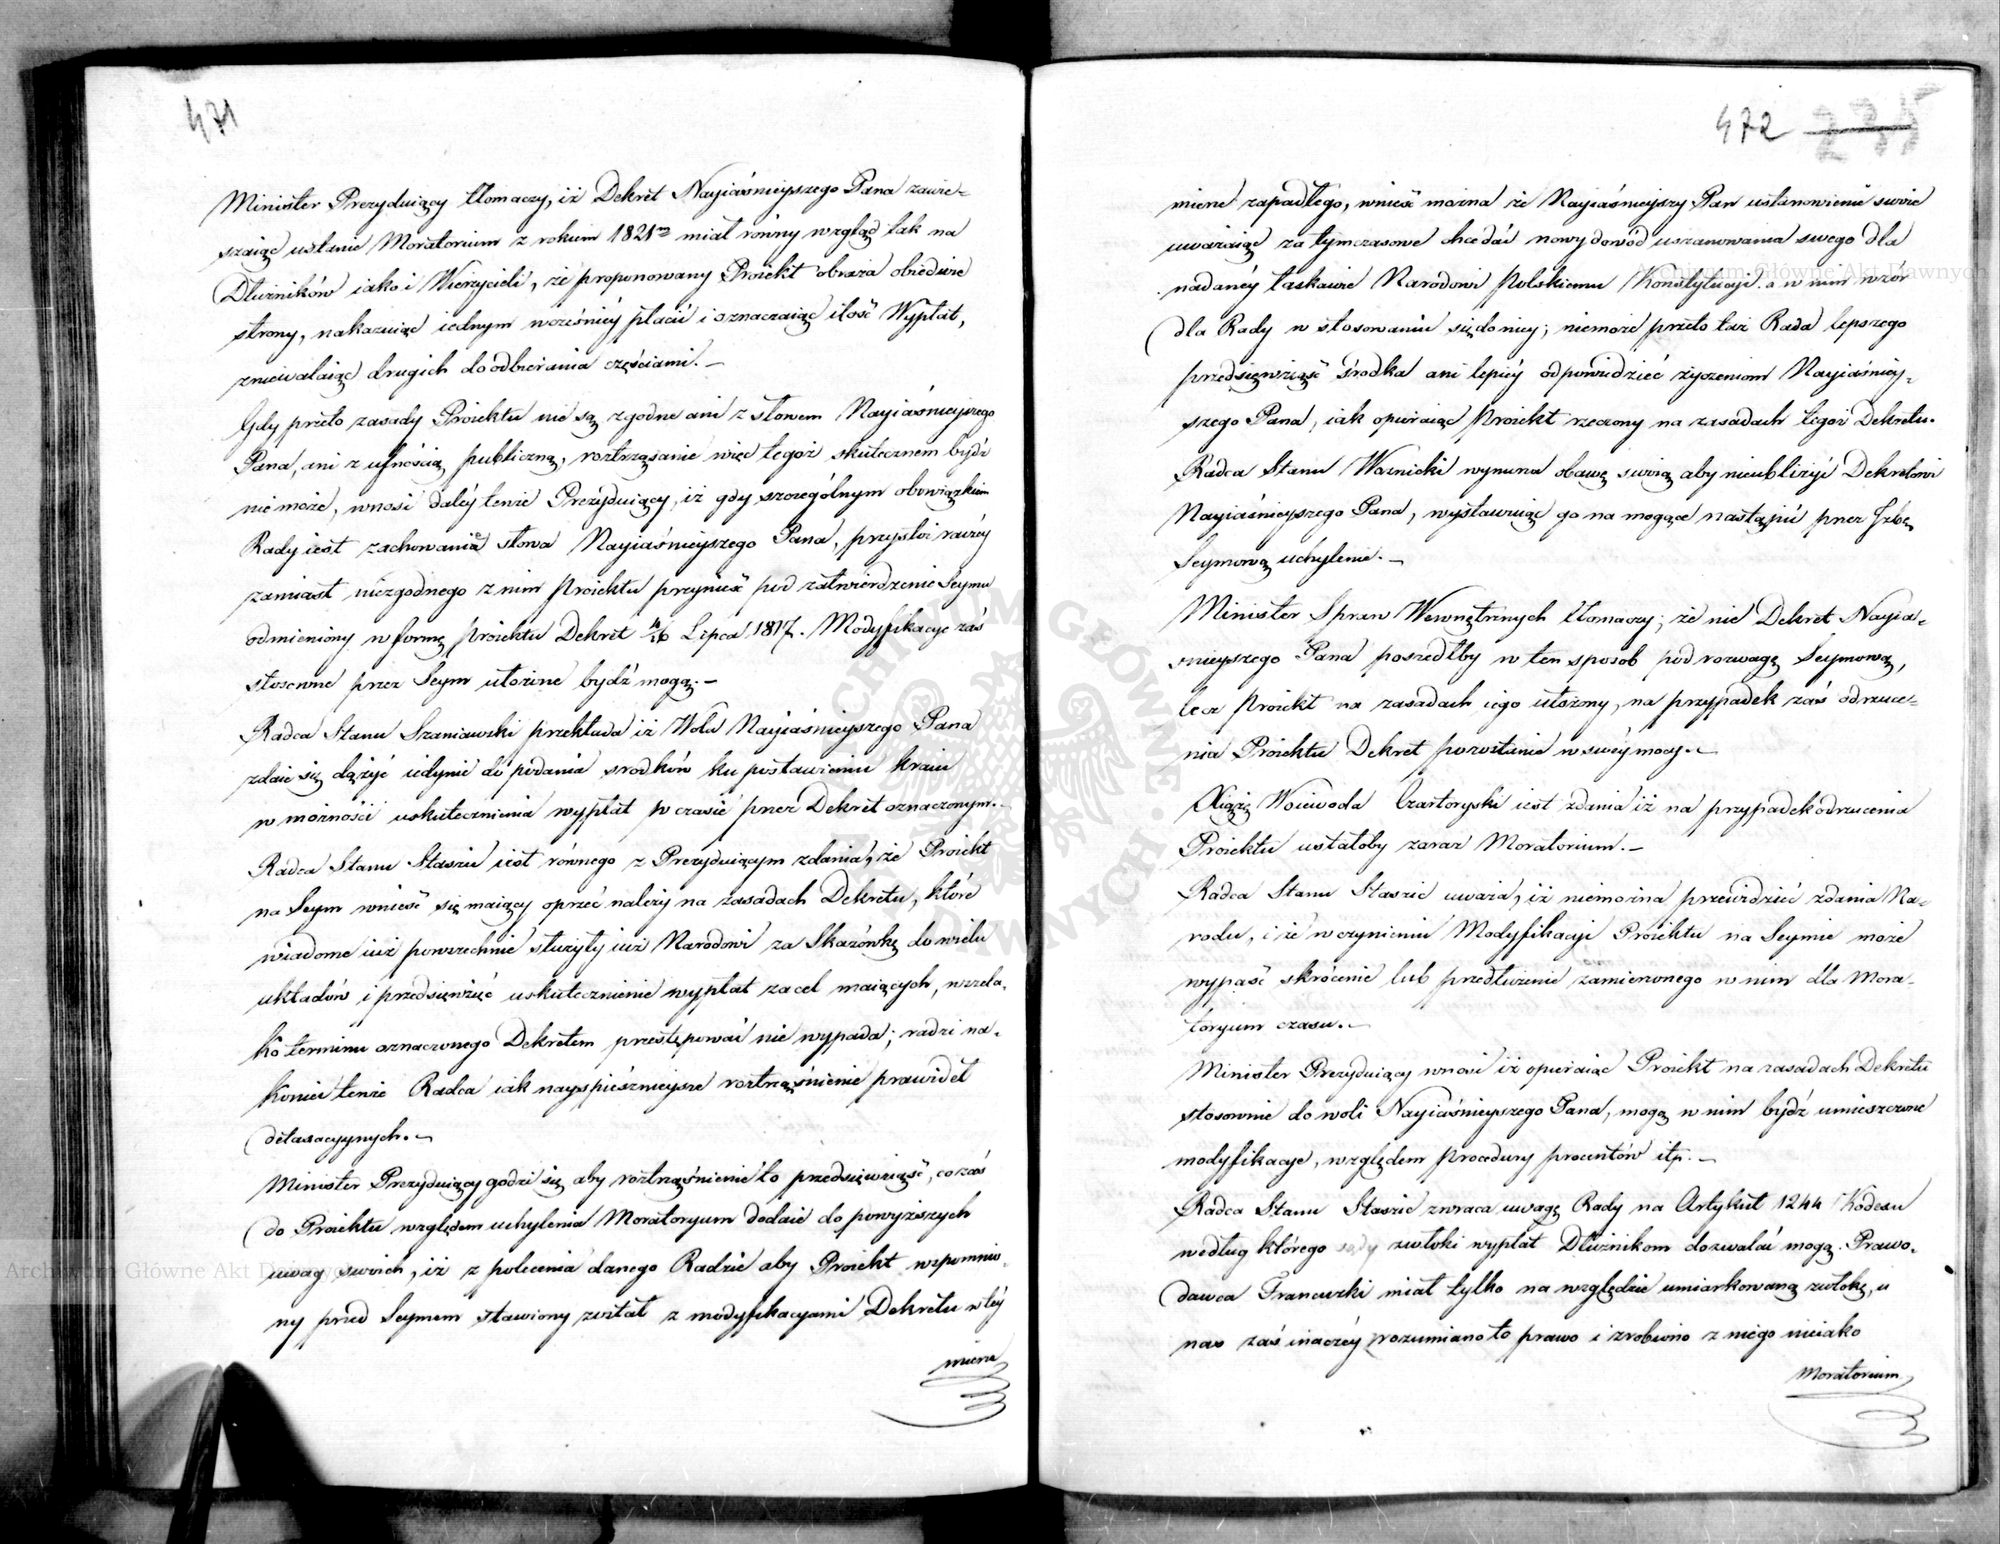 471
Minister Prezyduiący tłomaczy, iż Dekret Nayiaśnieyszego Pana zawie-
szaiąc ustanie Moratorium z rokiem 1821m miał równy wzgląd tak na
Dłużników iako i Wierzycieli, że proponowany Proiekt obraża obiedwie
strony, nakazuiąc iednym wcześniéy płacić i oznaczaiąc ilość Wypłat,
zniewalaiąc drugich do odbierania częściami.—
Gdy przeto zasady Proiektu nie są zgodne ani z słowem Nayiaśnieyszego
Pana, ani z ufnością publiczną, roztrząsanie więc tegoż skutecznem bydź
nie może, wnosi daléy tenże Prezyduiący, iż gdy szczególnym obowiązkiem
Rady iest zachowanie słowa Nayiaśnieyszego Pana, przystoi raczéy
zamiast niezgodnego z nim Proiektu przynieść pod zatwierdzenie Seymu
odmieniony w formę Proiektu Dekret 4/16 Lipca 1817. Modyfikacye zaś
stosowne przez Seym ułożone bydź mogą.—
Radca Stanu Szaniawski przekłada iż Wola Nayiaśnieyszego Pana
zdaie się dążyć iedynie do podania srodków ku postawieniu kraiu
w możności uskutecznienia wypłat w czasie przez Dekret oznaczonym.—
Radca Stanu Staszic iest równego z Prezyduiącym zdania, że Proiekt
na Seym wnieść się maiący oprzeć należy na zasadach Dekretu, które
wiadome iuż powszechnie służyły iuż Narodowi za Skazówkę do wielu
układów i przedsięwzięć uskutecznienie wypłat za cel maiących, wszela-
ko terminu oznaczonego Dekretem przestępować nie wypada; radzi na-
koniec tenże Radca iak nayspieszniejsze roztrząśnienie prawideł
detaxacyynych.—
Minister Prezyduiący godzi się aby roztrząśnienie to przedsięwziąść, co zaś
do Proiektu względem uchylenia Moratoryum dodaie do powyższych
uwag swoich, iż z polecenia danego Radzie aby Proiekt wspomnio-
ny przed Seymem stawiony został z modyfikacyami Dekretu w téy
mierze
472 235
mierze zapadłego, wnieść można że Nayiaśnieyszy Pan ustanowienie swoie
uważaiąc za tymczasowe chce dać nowy dowód uszanowania swego dla
nadanéy łaskawie Narodowi Polskiemu Konstytucyi a w nim wzór
dla Rady w stosowaniu się do niey; niemoże przeto taż Rada lepszego
przedsięwziąść środka ani lepiéy odpowiedzieć życzeniom Nayiaśniey-
szego Pana, iak opieraiąc Proiekt rzeczony na zasadach tegoż Dekretu.
Radca Stanu Woznicki wynurza obawę swoią aby nieubliżyć Dekretowi
Nayiaśnieyszego Pana, wystawuiąc go na mogące nastąpić przez Izbę
Seymową uchylenie.—
Minister Spraw Wewnętrznych tłomaczy; że nie Dekret Nayia-
śnieyszego Pana poszedłby w ten sposób pod rozwagę Seymową,
lecz Proiekt na zasadach iego ułożony, na przypadek zaś odrzuce-
nia Proiektu Dekret pozostanie w swéy mocy.—
Xiąże Woiewoda Czartoryski iest zdania iż na przypadek odrzucenia
Proiektu ustałoby zaraz Moratorium.—
Radca Stanu Staszic uważa, iż niemożna przewidzieć zdania Na-
rodu, i że w czynieniu Modyfikacyi Proiektu na Seymie może
wypaść skrócenie lub przedłużenie zamierzonego w nim dla Mora-
toryum czasu.—
Minister Prezyduiący wnosi iż opieraiąc Proiekt na zasadach Dekretu
stosownie do woli Nayiaśnieyszego Pana, mogą w nim bydź umieszczone
modyfikacye, względem Procedury procentów itp.—
Radca Stanu Staszic zwraca uwagę Rady na Artykuł 1244 Kodexu
według którego sądy zwłoki wypłat Dłużnikom dozwalać mogą. Prawo-
dawca Francuzki miał tylko na względzie umiarkowaną zwłokę, u
nas zaś inaczéy zrozumiano to prawo i zrobiono z niego nieiako
Moratorium